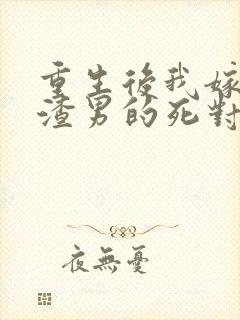 重生後我嫁
渣男的死對
夜無憂